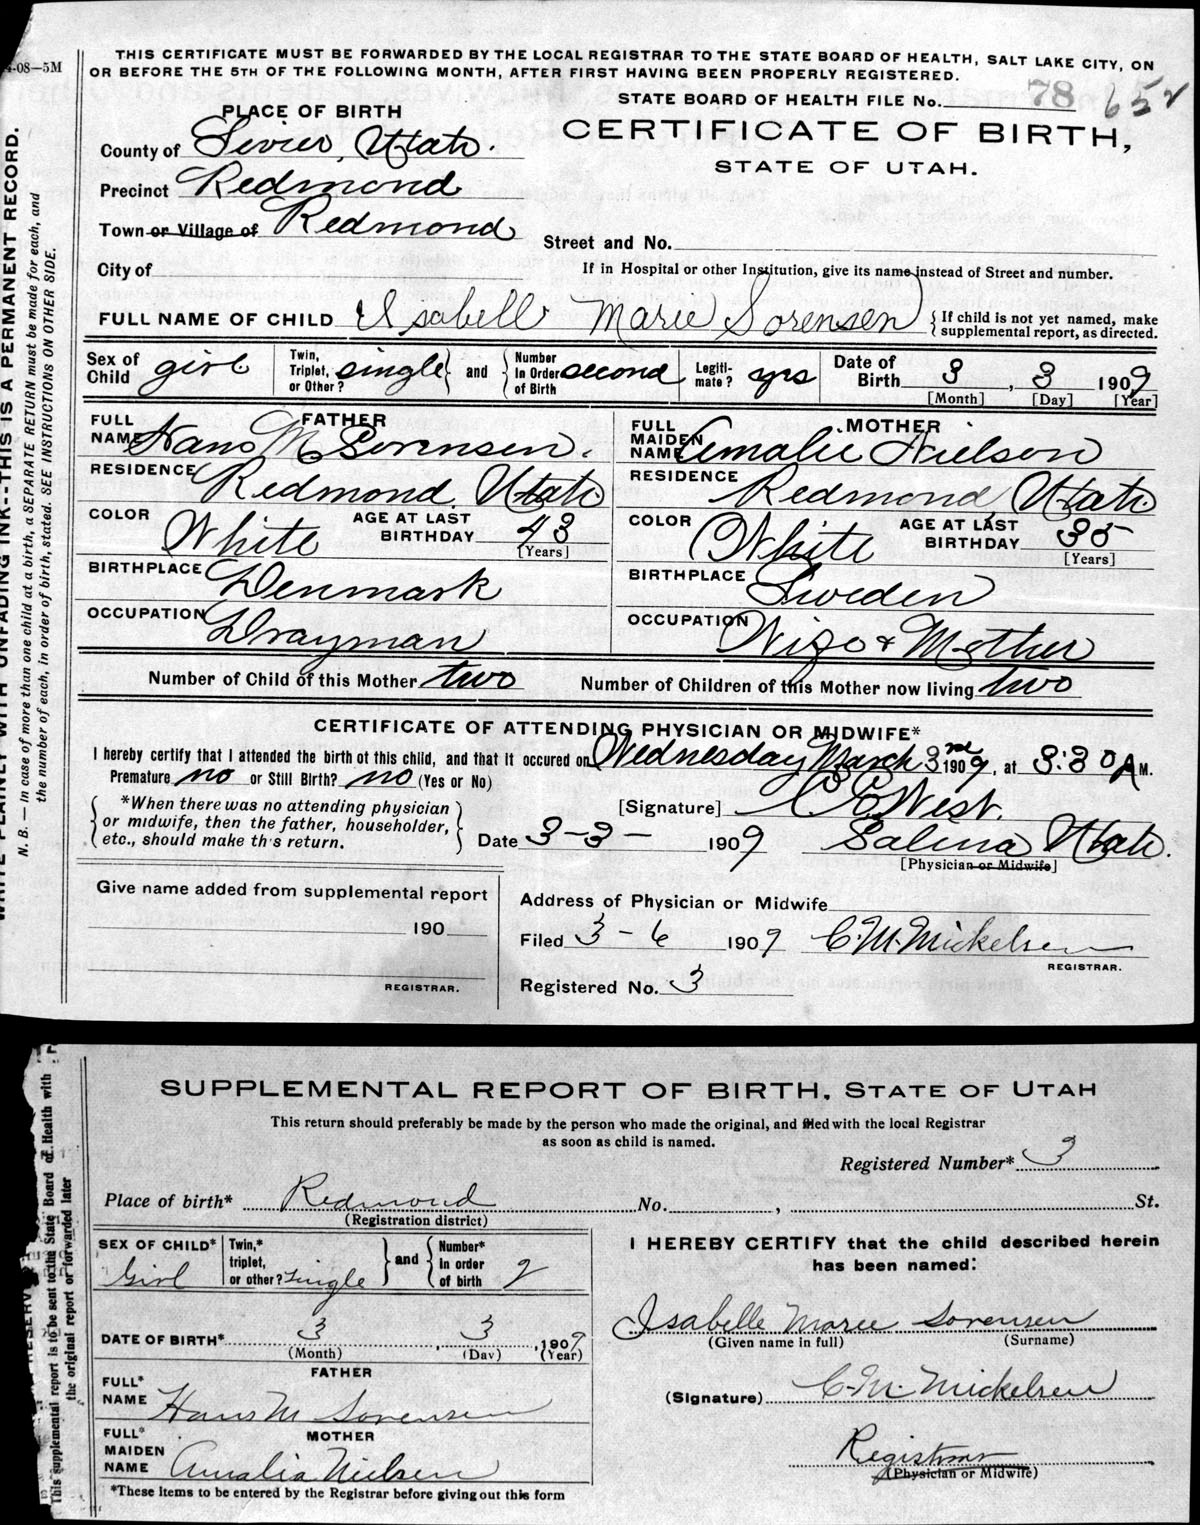 4-08—5M
THIS CERTIFICATE MUST BE FORWARDED BY THE LOCAL REGISTRAR TO THE STATE BOARD OF HEALTH, SALT LAKE CITY, ON
OR BEFORE THE 5TH OF THE FOLLOWING MONTH, AFTER FIRST HAVING BEEN PROPERLY REGISTERED.
STATE BOARD OF HEALTH FILE No. 78 652
PLACE OF BIRTH
CERTIFICATE OF BIRTH,
STATE OF UTAH.
County of Sevier, Utah.
Precinct Redmond
Town or Village of Redmond
Street and No.
City of
If in Hospital or other Institution, give its name instead of Street and number.
FULL NAME OF CHILD Isabell Marie Sorensen { If child is not yet named, make
supplemental report, as directed.
Sex of Child girl
Twin, Triplet, or Other? single } and { Number In Order of Birth second
Legiti-mate? yes
Date of Birth 3, 3 1909
[Month] [Day] [Year]
FATHER
FULL NAME Hans M Sorensen.
RESIDENCE Redmond, Utah
COLOR White AGE AT LAST BIRTHDAY 43
[Years]
BIRTHPLACE Denmark
OCCUPATION Drayman
MOTHER
FULL MAIDEN NAME Amalie Nielson
RESIDENCE Redmond, Utah
COLOR White AGE AT LAST BIRTHDAY 35
[Years]
BIRTHPLACE Sweden
OCCUPATION Wife & Mother
Number of Child of this Mother two Number of Children of this Mother now living two
CERTIFICATE OF ATTENDING PHYSICIAN OR MIDWIFE*
I hereby certify that I attended the birth of this child, and that it occured on Wednesday March 3rd 1909, at 3:30 A M.
Premature no or Still Birth? no (Yes or No)
{ *When there was no attending physician
or midwife, then the father, householder,
etc., should make this return. }
[Signature] West.
Date 3-3- 1909 Salina Utah.
[Physician or Midwife]
Give name added from supplemental report
190
REGISTRAR.
Address of Physician or Midwife
Filed 3-6 1909 C.M. Mickelsen
REGISTRAR.
Registered No. 3
WRITE PLAINLY WITH UNFADING INK--THIS IS A PERMANENT RECORD.
N. B. — In case of more than one child at a birth, a SEPARATE RETURN must be made for each, and
the number of each, in order of birth, stated. SEE INSTRUCTIONS ON OTHER SIDE.
SUPPLEMENTAL REPORT OF BIRTH, STATE OF UTAH
This return should preferably be made by the person who made the original, and filed with the local Registrar
as soon as child is named.
Registered Number* 3
Place of birth* Redmond No. , St.
(Registration district)
SEX OF CHILD* Girl
Twin,* triplet, or other? single } and { Number* In order of birth 2
DATE OF BIRTH* 3, 3, 1909
(Month) (Day) (Year)
FATHER
FULL* NAME Hans M Sorensen
MOTHER
FULL* MAIDEN NAME Amalia Nielsen
*These items to be entered by the Registrar before giving out this form
I HEREBY CERTIFY that the child described herein
has been named:
Isabelle Marie Sorensen
(Given name in full) (Surname)
(Signature) C.M. Mickelsen
Registrar
(Physician or Midwife)
This supplemental report is to be sent to the State Board of Health with
the original report or forwarded later